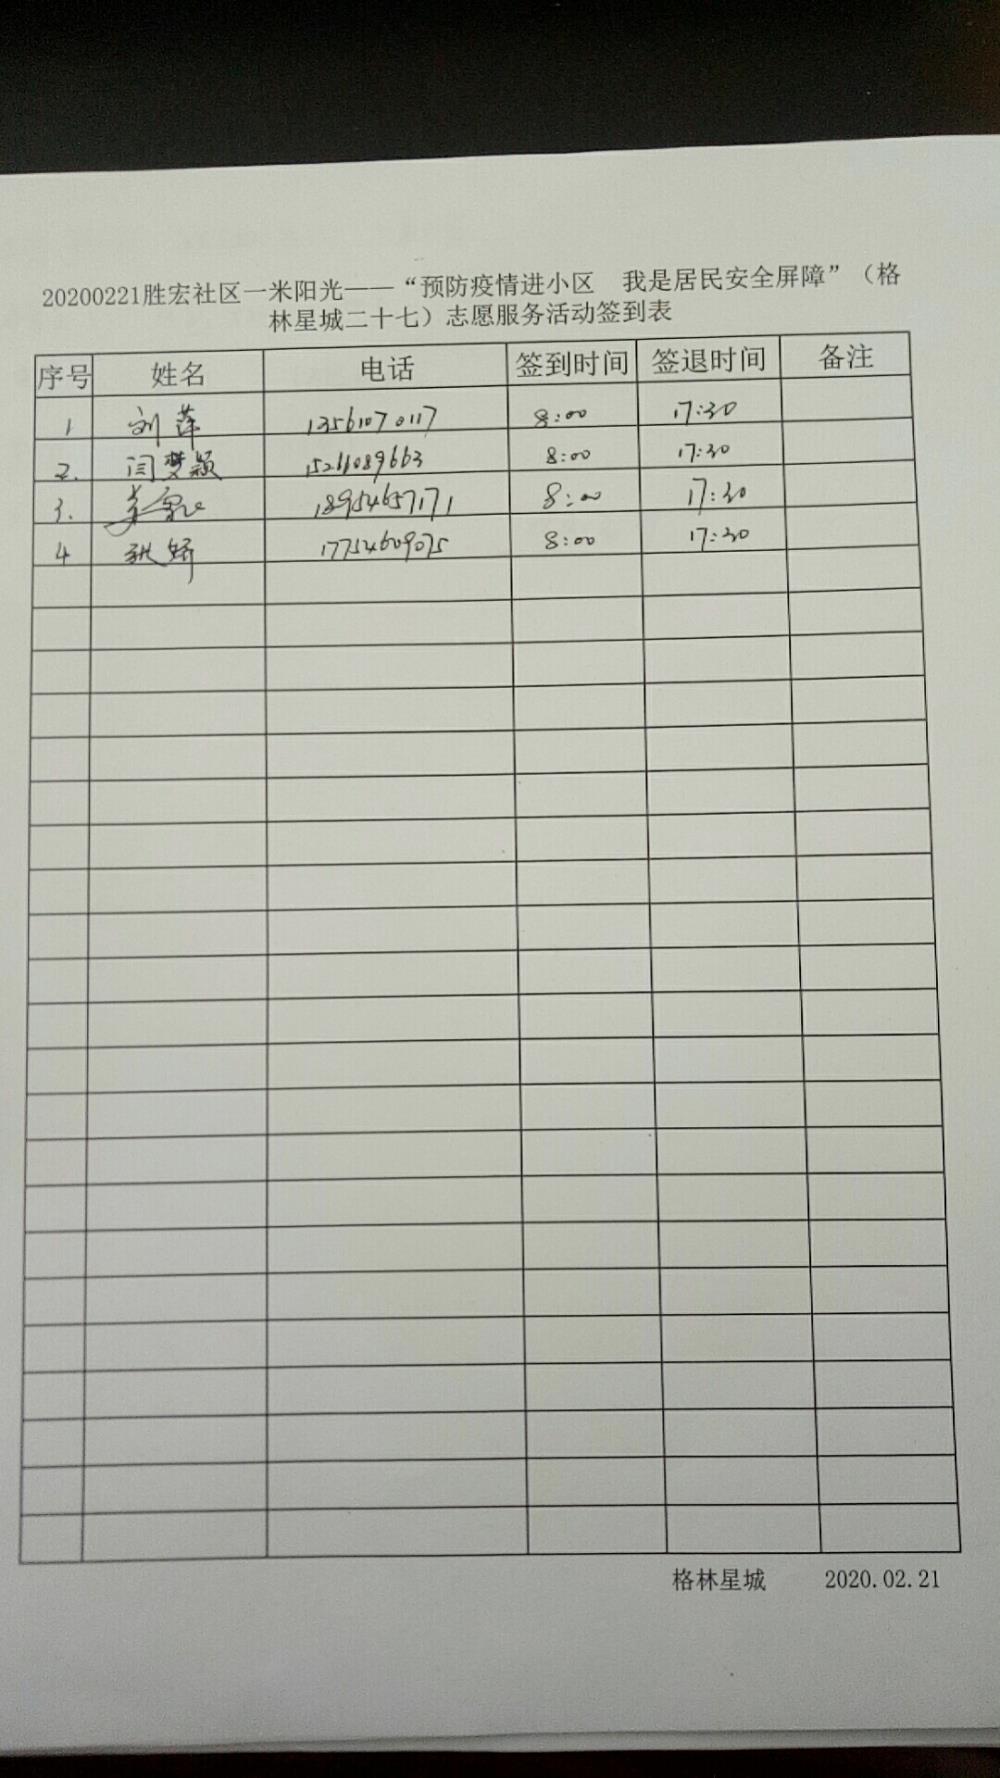 20200221胜宏社区一米阳光——“预防疫情进小区　我是居民安全屏障”（格
林星城二十七）志愿服务活动签到表
序号 姓名 电话 签到时间 签退时间 备注
1 刘萍 13561070117 8:00 17:30
2. 闫梦颖 15266089663 8:00 17:30
3. 18954657171 8:00 17:30
4 娇 17754609075 8:00 17:30
格林星城 2020.02.21